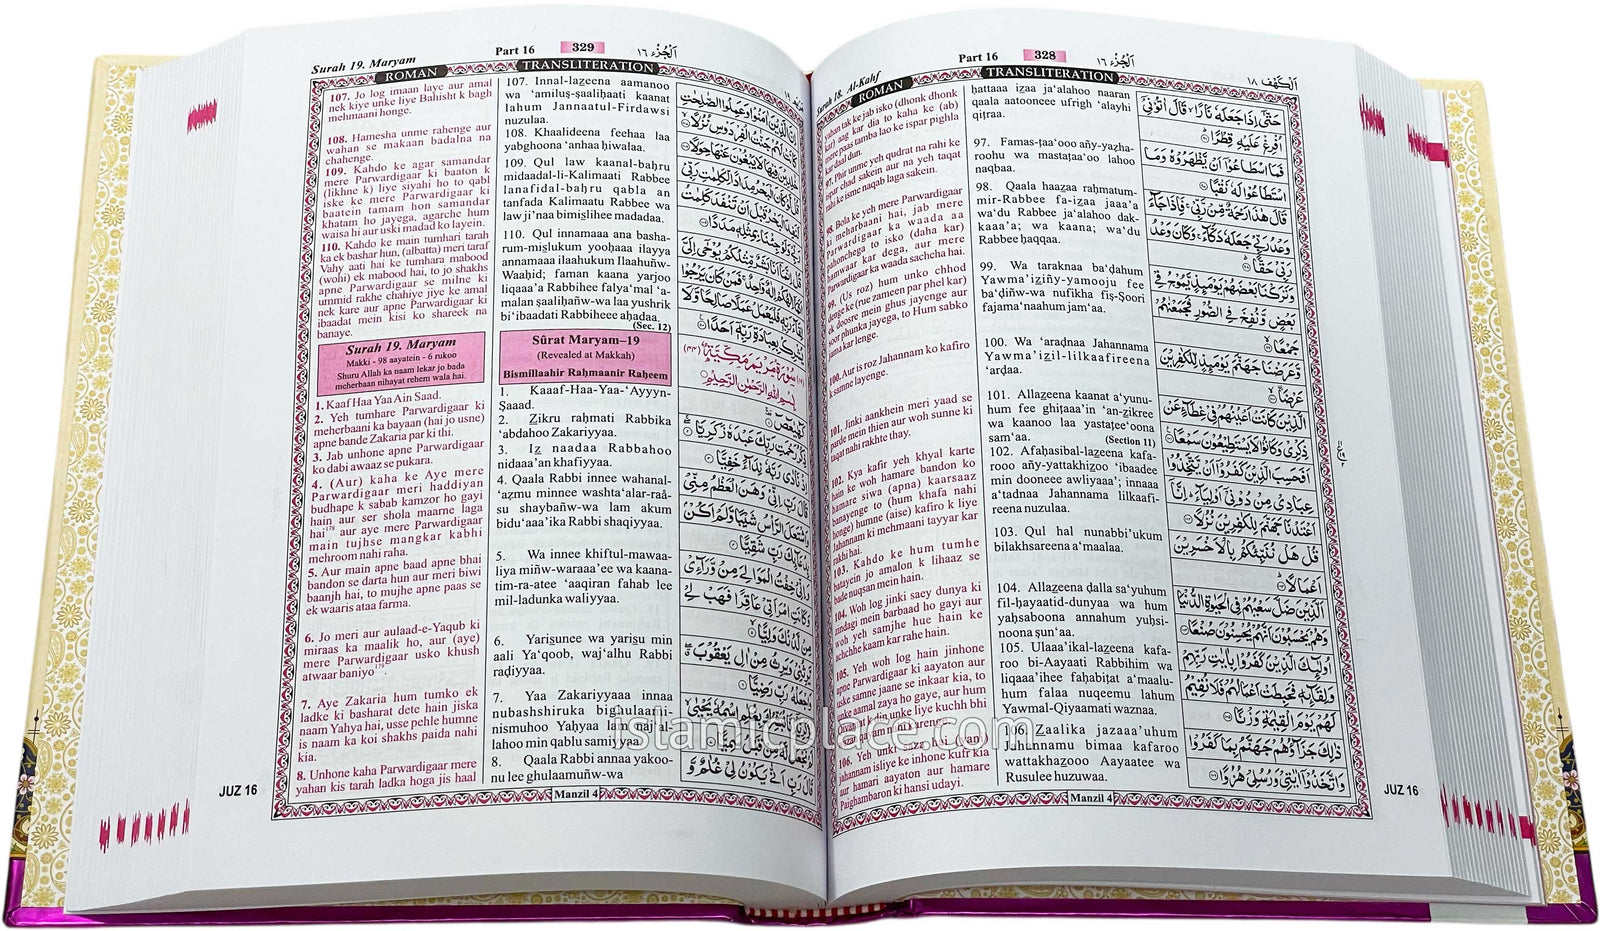 Surah 18. Al-Kahf
Part 16
328
اَلْجُزْء ١٦
اَلْكَهْف ١٨
ROMAN
TRANSLITERATION
yahan tak ke jab isko (dhonk dhonk
kar) aag kar dia to kaha ke (ab)
mere paas tamba lao ke ispar pighla
kar daal dun.
97. Phir unme yeh qudrat na rahi ke
ispar chad sakein aur na yeh taqat
rahi ke isme naqab laga sakein.
98. Bola ke yeh mere Parwardigaar
ki meharbaani hai, jab mere
Parwardigaar ka waada aa
pahonchega to isko (daha kar)
hamwaar kar dega, aur mere
Parwardigaar ka waada sachcha hai.
99. (Us roz) hum unko chhod
denge ke (rue zameen par phel kar)
ek doosre mein ghus jayenge aur
soor phunka jayega, to Hum sabko
jama kar lenge.
100. Aur is roz Jahannam ko kafiro
k samne layenge.
101. Jinki aankhein meri yaad se
parde mein thien aur woh sunne ki
taqat nahi rakhte thay.
102. Kya kafir yeh khyal karte
hain ke woh hamare bandon ko
hamare siwa (apna) kaarsaaz
banayenge to (hum khafa nahi
honge) humne (aise) kafiro k liye
Jahannam ki mehmaani tayyar kar
rakhi hai.
103. Kahdo ke hum tumhe
batayein jo amalon k lihaaz se
bade nuqsan mein hain.
104. Woh log jinki saey dunya ki
zindagi mein barbaad ho gayi aur
woh yeh samjhe hue hain ke
achchhe kaam kar rahe hain.
105. Yeh woh log hain jinhone
apne Parwardigaar ki aayaton aur
uske samne jaane se inkaar kia, to
uske aamal zaya ho gaye, aur hum
106. Yeh unki saza hai, yani
jahannam isliye ke inhone kufr kia
aur hamari aayaton aur hamare
Paighambaron ki hansi udayi.
ḥattaaa iẕaa ja‘alahoo naaran
qaala aatooneee ufrigh ‘alayhi
qiṭraa.
97. Famas-ṭaa‘ooo añy-yaẓha-
roohu wa mastaṭaa‘oo lahoo
naqbaa.
98. Qaala haaẕaa raḥmatum-
mir-Rabbee fa-iẕaa jaaa’a
wa‘du Rabbee ja‘alahoo dak-
kaaa’a; wa kaana; wa‘du
Rabbee ḥaqqaa.
99. Wa taraknaa ba‘ḍahum
Yawma’iẕiñy-yamooju fee
ba‘ḍiñw-wa nufikha fiṣ-Ṣoori
fajama‘naahum jam‘aa.
100. Wa ‘araḍnaa Jahannama
Yawma’iẕil-lilkaafireena
‘arḍaa.
101. Allaẕeena kaanat a‘yunu-
hum fee ghiṭaaa’in ‘an-ẕikree
wa kaanoo laa yastaṭee‘oona
sam‘aa. (Section 11)
102. Afaḥasibal-laẕeena kafa-
rooo añy-yattakhiẕoo ‘ibaadee
min dooneee awliyaaa’; innaaa
a‘tadnaa Jahannama lilkaafi-
reena nuzulaa.
103. Qul hal nunabbi’ukum
bilakhsareena a‘maalaa.
104. Allaẕeena ḍalla sa‘yuhum
fil-ḥayaatid-dunyaa wa hum
yaḥsaboona annahum yuḥsi-
noona ṣun‘aa.
105. Ulaaa’ikal-laẕeena kafa-
roo bi-Aayaati Rabbihim wa
liqaaa’ihee faḥabiṭat a‘maalu-
hum falaa nuqeemu lahum
Yawmal-Qiyaamati waznaa.
106. Zaalika jazaaa’uhum
Jahannamu bimaa kafaroo
wattakhaẕooo Aayaatee wa
Rusulee huzuwaa.
حَتّٰۤى اِذَا جَعَلَهٗ نَارًا ۙ قَالَ اٰتُوْنِىْۤ
اُفْرِغْ عَلَيْهِ قِطْرًا ؕ
فَمَا اسْطَاعُوْۤا اَنْ يَّظْهَرُوْهُ وَمَا
اسْتَطَاعُوْا لَهٗ نَقْبًا
قَالَ هٰذَا رَحْمَةٌ مِّنْ رَّبِّىْ ۚ فَاِذَا جَآءَ
وَعْدُ رَبِّىْ جَعَلَهٗ دَكَّآءَ ۚ وَكَانَ وَعْدُ
رَبِّىْ حَقًّا ؕ
وَتَرَكْنَا بَعْضَهُمْ يَوْمَئِذٍ يَّمُوْجُ فِىْ
بَعْضٍ وَّنُفِخَ فِى الصُّوْرِ فَجَمَعْنٰهُمْ
جَمْعًا ۙ
وَّعَرَضْنَا جَهَنَّمَ يَوْمَئِذٍ لِّلْكٰفِرِيْنَ
عَرْضَا ۙ
الَّذِيْنَ كَانَتْ اَعْيُنُهُمْ فِىْ غِطَآءٍ عَنْ
ذِكْرِىْ وَكَانُوْا لَا يَسْتَطِيْعُوْنَ سَمْعًا
اَفَحَسِبَ الَّذِيْنَ كَفَرُوْۤا اَنْ يَّتَّخِذُوْا
عِبَادِىْ مِنْ دُوْنِىْۤ اَوْلِيَآءَ ؕ اِنَّاۤ
اَعْتَدْنَا جَهَنَّمَ لِلْكٰفِرِيْنَ نُزُلًا
قُلْ هَلْ نُنَبِّئُكُمْ بِالْاَخْسَرِيْنَ
اَعْمَالًا ؕ
اَلَّذِيْنَ ضَلَّ سَعْيُهُمْ فِى الْحَيٰوةِ الدُّنْيَا
وَهُمْ يَحْسَبُوْنَ اَنَّهُمْ يُحْسِنُوْنَ صُنْعًا
اُولٰٓئِكَ الَّذِيْنَ كَفَرُوْا بِاٰيٰتِ رَبِّهِمْ
وَلِقَآئِهٖ فَحَبِطَتْ اَعْمَالُهُمْ فَلَا نُقِيْمُ
لَهُمْ يَوْمَ الْقِيٰمَةِ وَزْنًا
ذٰلِكَ جَزَآؤُهُمْ جَهَنَّمُ بِمَا كَفَرُوْا
وَاتَّخَذُوْۤا اٰيٰتِىْ وَرُسُلِىْ هُزُوًا
Manzil 4
JUZ 16
Surah 19. Maryam
Part 16
329
اَلْجُزْء ١٦
ROMAN
TRANSLITERATION
107. Jo log imaan laye aur amal
nek kiye unke liye Bahisht k bagh
mehmaani honge.
108. Hamesha unme rahenge aur
wahan se makaan badalna na
chahenge.
109. Kahdo ke agar samandar
mere Parwardigaar ki baaton k
(likhne k) liye siyahi ho to qabl
iske ke mere Parwardigaar ki
baatein tamam hon samandar
khatam ho jayega, agarche hum
waisa hi aur uski madad ko layein.
110. Kahdo ke main tumhari tarah
ka ek bashar hun, (albatta) meri taraf
Vahy aati hai ke tumhara mabood
(wohi) ek mabood hai, to jo shakhs
apne Parwardigaar se milne ki
ummid rakhe chahiye jiye ke amal
nek kare aur apne Parwardigaar ki
ibaadat mein kisi ko shareek na
banaye.
Surah 19. Maryam
Makki - 98 aayatein - 6 rukoo
Shuru Allah ka naam lekar jo bada
meherbaan nihayat rehem wala hai.
1. Kaaf Haa Yaa Ain Saad.
2. Yeh tumhare Parwardigaar ki
meherbaani ka bayaan (hai jo usne)
apne bande Zakaria par ki thi.
3. Jab unhone apne Parwardigaar
ko dabi awaaz se pukara.
4. (Aur) kaha ke Aye mere
Parwardigaar meri haddiyan
budhape k sabab kamzor ho gayi
hain aur ser shola maarne laga
hai178 aur aye mere Parwardigaar
main tujhse mangkar kabhi
mehroom nahi raha.
5. Aur main apne baad apne bhai
bandon se darta hun aur meri biwi
baanjh hai, to mujhe apne paas se
ek waaris ataa farma.
6. Jo meri aur aulaad-e-Yaqub ki
miraas ka maalik ho, aur (aye)
mere Parwardigaar usko khush
atwaar baniyo179.
7. Aye Zakaria hum tumko ek
ladke ki basharat dete hain jiska
naam Yahya hai, usse pehle humne
is naam ka koi shakhs paida nahi
kia.
8. Unhone kaha Parwardigaar mere
yahan kis tarah ladka hoga jis haal
107. Innal-lazeena aamanoo
wa ‘amiluṣ-ṣaaliḥaati kaanat
lahum Jannaatul-Firdawsi
nuzulaa.
108. Khaalideena feehaa laa
yabghoona ‘anhaa ḥiwalaa.
109. Qul law kaanal-baḥru
midaadal-li-Kalimaati Rabbee
lanafidal-baḥru qabla an
tanfada Kalimaatu Rabbee wa
law ji’naa bimiṡlihee madadaa.
110. Qul innamaaa ana basha-
rum-miṡlukum yooḥaaa ilayya
annamaaa ilaahukum Ilaahuñw-
Waaḥid; faman kaana yarjoo
liqaaa’a Rabbihee falya‘mal ‘a-
malan ṣaaliḥañw-wa laa yushrik
bi‘ibaadati Rabbiheee aḥadaa.
(Sec. 12)
Sûrat Maryam–19
(Revealed at Makkah)
Bismillaahir Raḥmaanir Raḥeem
1. Kaaaf-Haa-Yaa-‘Ayyyn-
Ṣaaad.
2. Ẕikru raḥmati Rabbika
‘abdahoo Zakariyyaa.
3. Iẕ naadaa Rabbahoo
nidaaa’an khafiyyaa.
4. Qaala Rabbi innee wahanal-
‘aẓmu minnee washta‘alar-raâ-
su shaybañw-wa lam akum
bidu‘aaa’ika Rabbi shaqiyyaa.
5. Wa innee khiftul-mawaa-
liya miñw-waraaa’ee wa kaana-
tim-ra-atee ‘aaqiran fahab lee
mil-ladunka waliyyaa.
6. Yariṡunee wa yariṡu min
aali Ya‘qoob, waj‘alhu Rabbi
raḍiyyaa.
7. Yaa Zakariyyaaa innaa
nubashshiruka bighulaami-
nismuhoo Yaḥyaa lam naj‘al-
lahoo min qablu samiyyaa.
8. Qaala Rabbi annaa yakoo-
nu lee ghulaamuñw-wa
اِنَّ الَّذِيْنَ اٰمَنُوْا وَعَمِلُوا الصّٰلِحٰتِ
كَانَتْ لَهُمْ جَنّٰتُ الْفِرْدَوْسِ نُزُلًا
خٰلِدِيْنَ فِيْهَا لَا يَبْغُوْنَ عَنْهَا حِوَلًا
قُلْ لَّوْ كَانَ الْبَحْرُ مِدَادًا لِّكَلِمٰتِ رَبِّىْ
لَنَفِدَ الْبَحْرُ قَبْلَ اَنْ تَنْفَدَ كَلِمٰتُ
رَبِّىْ وَلَوْ جِئْنَا بِمِثْلِهٖ مَدَدًا
قُلْ اِنَّمَاۤ اَنَا بَشَرٌ مِّثْلُكُمْ يُوْحٰۤى اِلَىَّ
اَنَّمَاۤ اِلٰهُكُمْ اِلٰهٌ وَّاحِدٌ ۚ فَمَنْ كَانَ يَرْجُوْا
لِقَآءَ رَبِّهٖ فَلْيَعْمَلْ عَمَلًا صَالِحًا وَّلَا
يُشْرِكْ بِعِبَادَةِ رَبِّهٖۤ اَحَدًا
سُوْرَةُ مَرْيَمَ مَكِّيَّةٌ
بِسْمِ اللّٰهِ الرَّحْمٰنِ الرَّحِيْمِ
كٓهٰيٰعٓصٓ
ذِكْرُ رَحْمَتِ رَبِّكَ عَبْدَهٗ زَكَرِيَّا
اِذْ نَادٰى رَبَّهٗ نِدَآءً خَفِيًّا
قَالَ رَبِّ اِنِّىْ وَهَنَ الْعَظْمُ مِنِّىْ
وَاشْتَعَلَ الرَّاْسُ شَيْبًا وَّلَمْ اَكُنْۢ
بِدُعَآئِكَ رَبِّ شَقِيًّا
وَاِنِّىْ خِفْتُ الْمَوَالِىَ مِنْ وَّرَآءِىْ
وَكَانَتِ امْرَاَتِىْ عَاقِرًا فَهَبْ لِىْ
مِنْ لَّدُنْكَ وَلِيًّا
يَّرِثُنِىْ وَيَرِثُ مِنْ اٰلِ يَعْقُوْبَ
وَاجْعَلْهُ رَبِّ رَضِيًّا
قَالَ رَبِّ اَنّٰى يَكُوْنُ لِىْ غُلٰمٌ وَّ
Manzil 4
JUZ 16
islamicplace.com